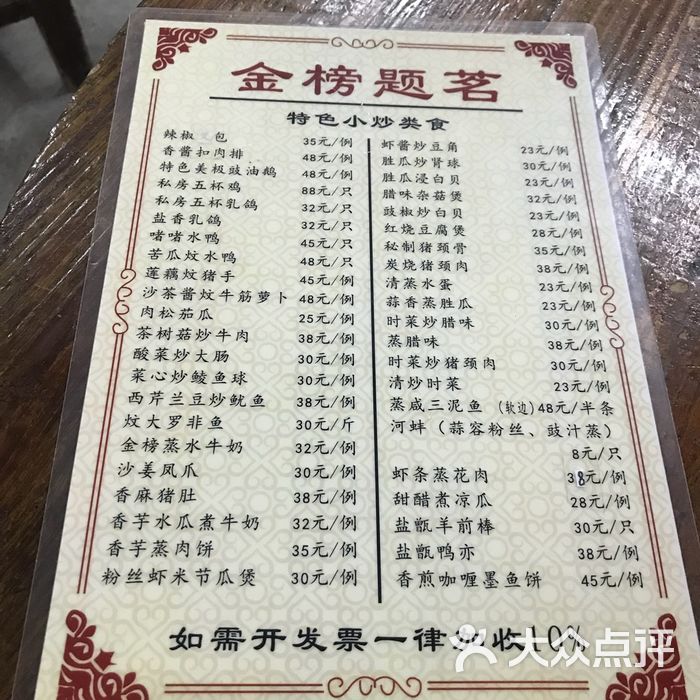 金榜题茗
特色小炒类食
辣椒 包 35元/例
香酱扣肉排 48元/例
特色美极豉油鹅 48元/例
私房五杯鸡 88元/只
私房五杯乳鸽 32元/只
盐香乳鸽 32元/只
啫啫水鸭 45元/只
苦瓜炆水鸭 48元/只
莲藕炆猪手 45元/例
沙茶酱炆牛筋萝卜 48元/例
肉松茄瓜 25元/例
茶树菇炒牛肉 38元/例
酸菜炒大肠 30元/例
菜心炒鲮鱼球 30元/例
西芹兰豆炒鱿鱼 38元/例
炆大罗非鱼 30元/斤
金榜蒸水牛奶 32元/例
沙姜凤爪 30元/例
香麻猪肚 38元/例
香芋水瓜煮牛奶 32元/例
香芋蒸肉饼 35元/例
粉丝虾米节瓜煲 30元/例
虾酱炒豆角 23元/例
胜瓜炒肾球 30元/例
胜瓜浸白贝 23元/例
腊味杂菇煲 32元/例
豉椒炒白贝 23元/例
红烧豆腐煲 28元/例
秘制猪颈骨 35元/例
炭烧猪颈肉 38元/例
清蒸水蛋 23元/例
蒜香蒸胜瓜 23元/例
时菜炒腊味 30元/例
蒸腊味 38元/例
时菜炒猪颈肉 30元/例
清炒时菜 23元/例
蒸咸三泥鱼（软边）48元/半条
河蚌（蒜容粉丝、豉汁蒸）
8元/只
虾条蒸花肉 38元/例
甜醋煮凉瓜 28元/例
盐甑羊前棒 30元/只
盐甑鸭亦 38元/例
香煎咖喱墨鱼饼 45元/例
如需开发票一律加收10%
大众点评